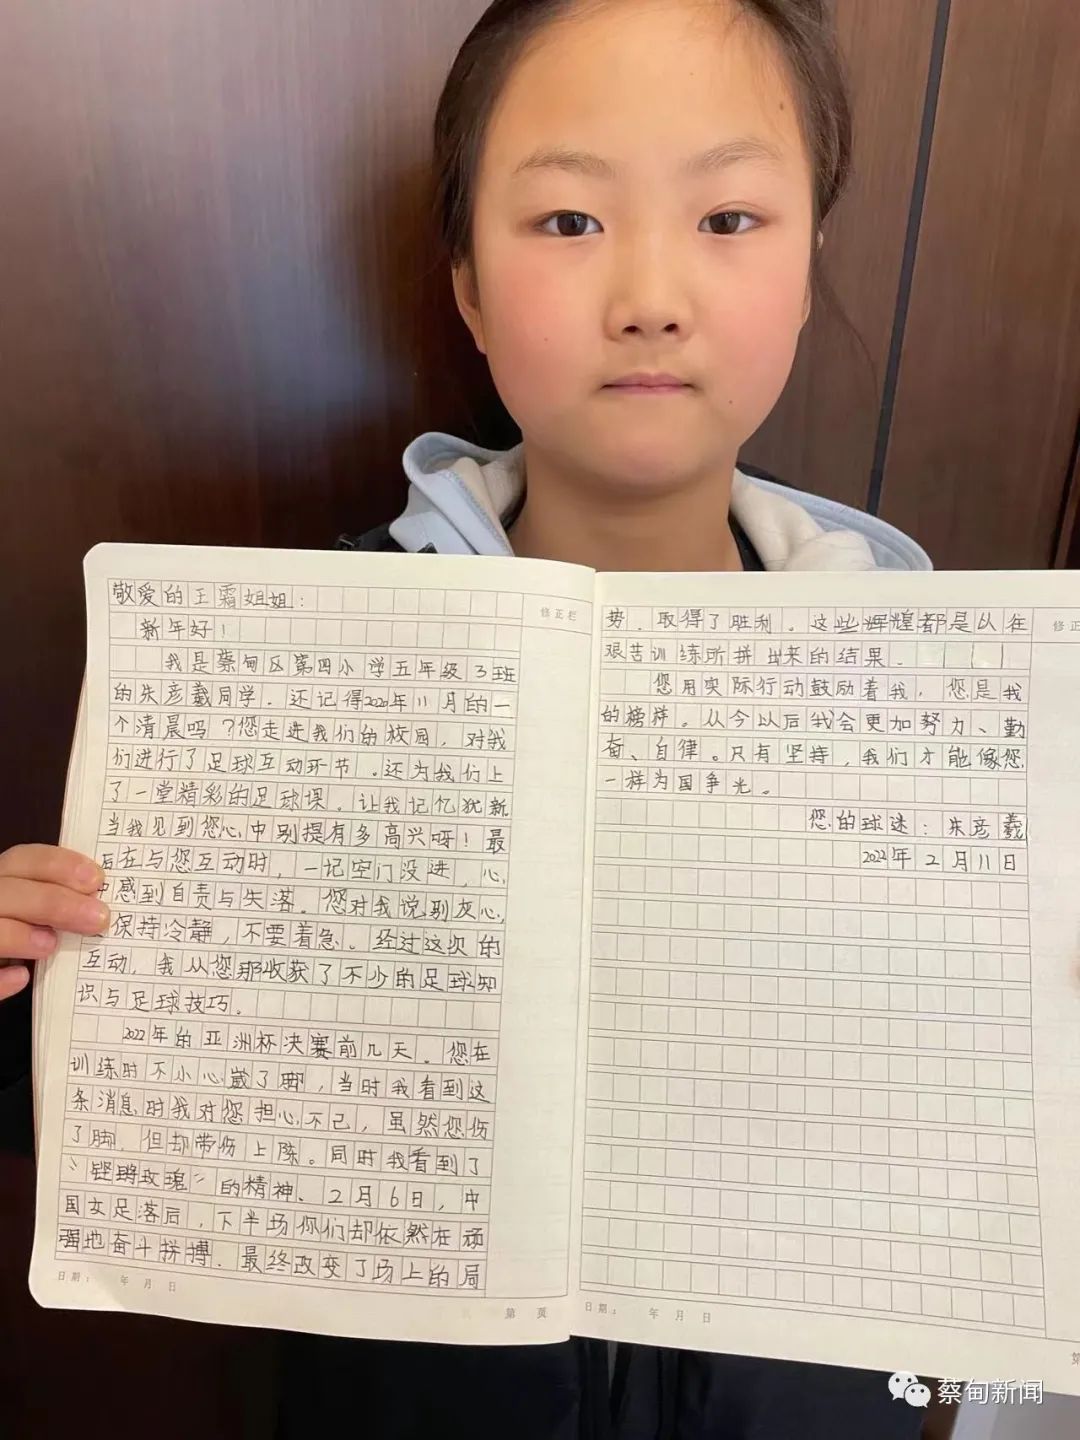 敬爱的王霜姐姐：
新年好！
我是蔡甸区第四小学五年级3班
的朱彦羲同学。还记得2020年11月的一
个清晨吗？您走进我们的校园，对我
们进行了足球互动环节。还为我们上
了一堂精彩的足球课。让我记忆犹新
当我见到您心中别提有多高兴呀！最
后在与您互动时，一记空门没进，心
中感到自责与失落。您对我说别灰心，
保持冷静，不要着急。经过这次的
互动，我从您那收获了不少的足球知
识与足球技巧。
2022年的亚洲杯决赛前几天。您在
训练时不小心崴了脚，当时我看到这
条消息时我对您担心不已，虽然您伤
了脚，但却带伤上阵。同时我看到了
“铿锵玫瑰”的精神、2月6日，中
国女足落后，下半场你们却依然在顽
强地奋斗拼搏．最终改变了场上的局
日期： 年 月 日
第 页
修正栏
势．取得了胜利。这些辉煌都是从在
艰苦训练所拼出来的结果．
您用实际行动鼓励着我，您是我
的榜样。从今以后我会更加努力、勤
奋、自律。只有坚持，我们才能像您
一样为国争光。
您的球迷：朱彦羲
2022年2月11日
修正
日期： 年 月 日
第
蔡甸新闻